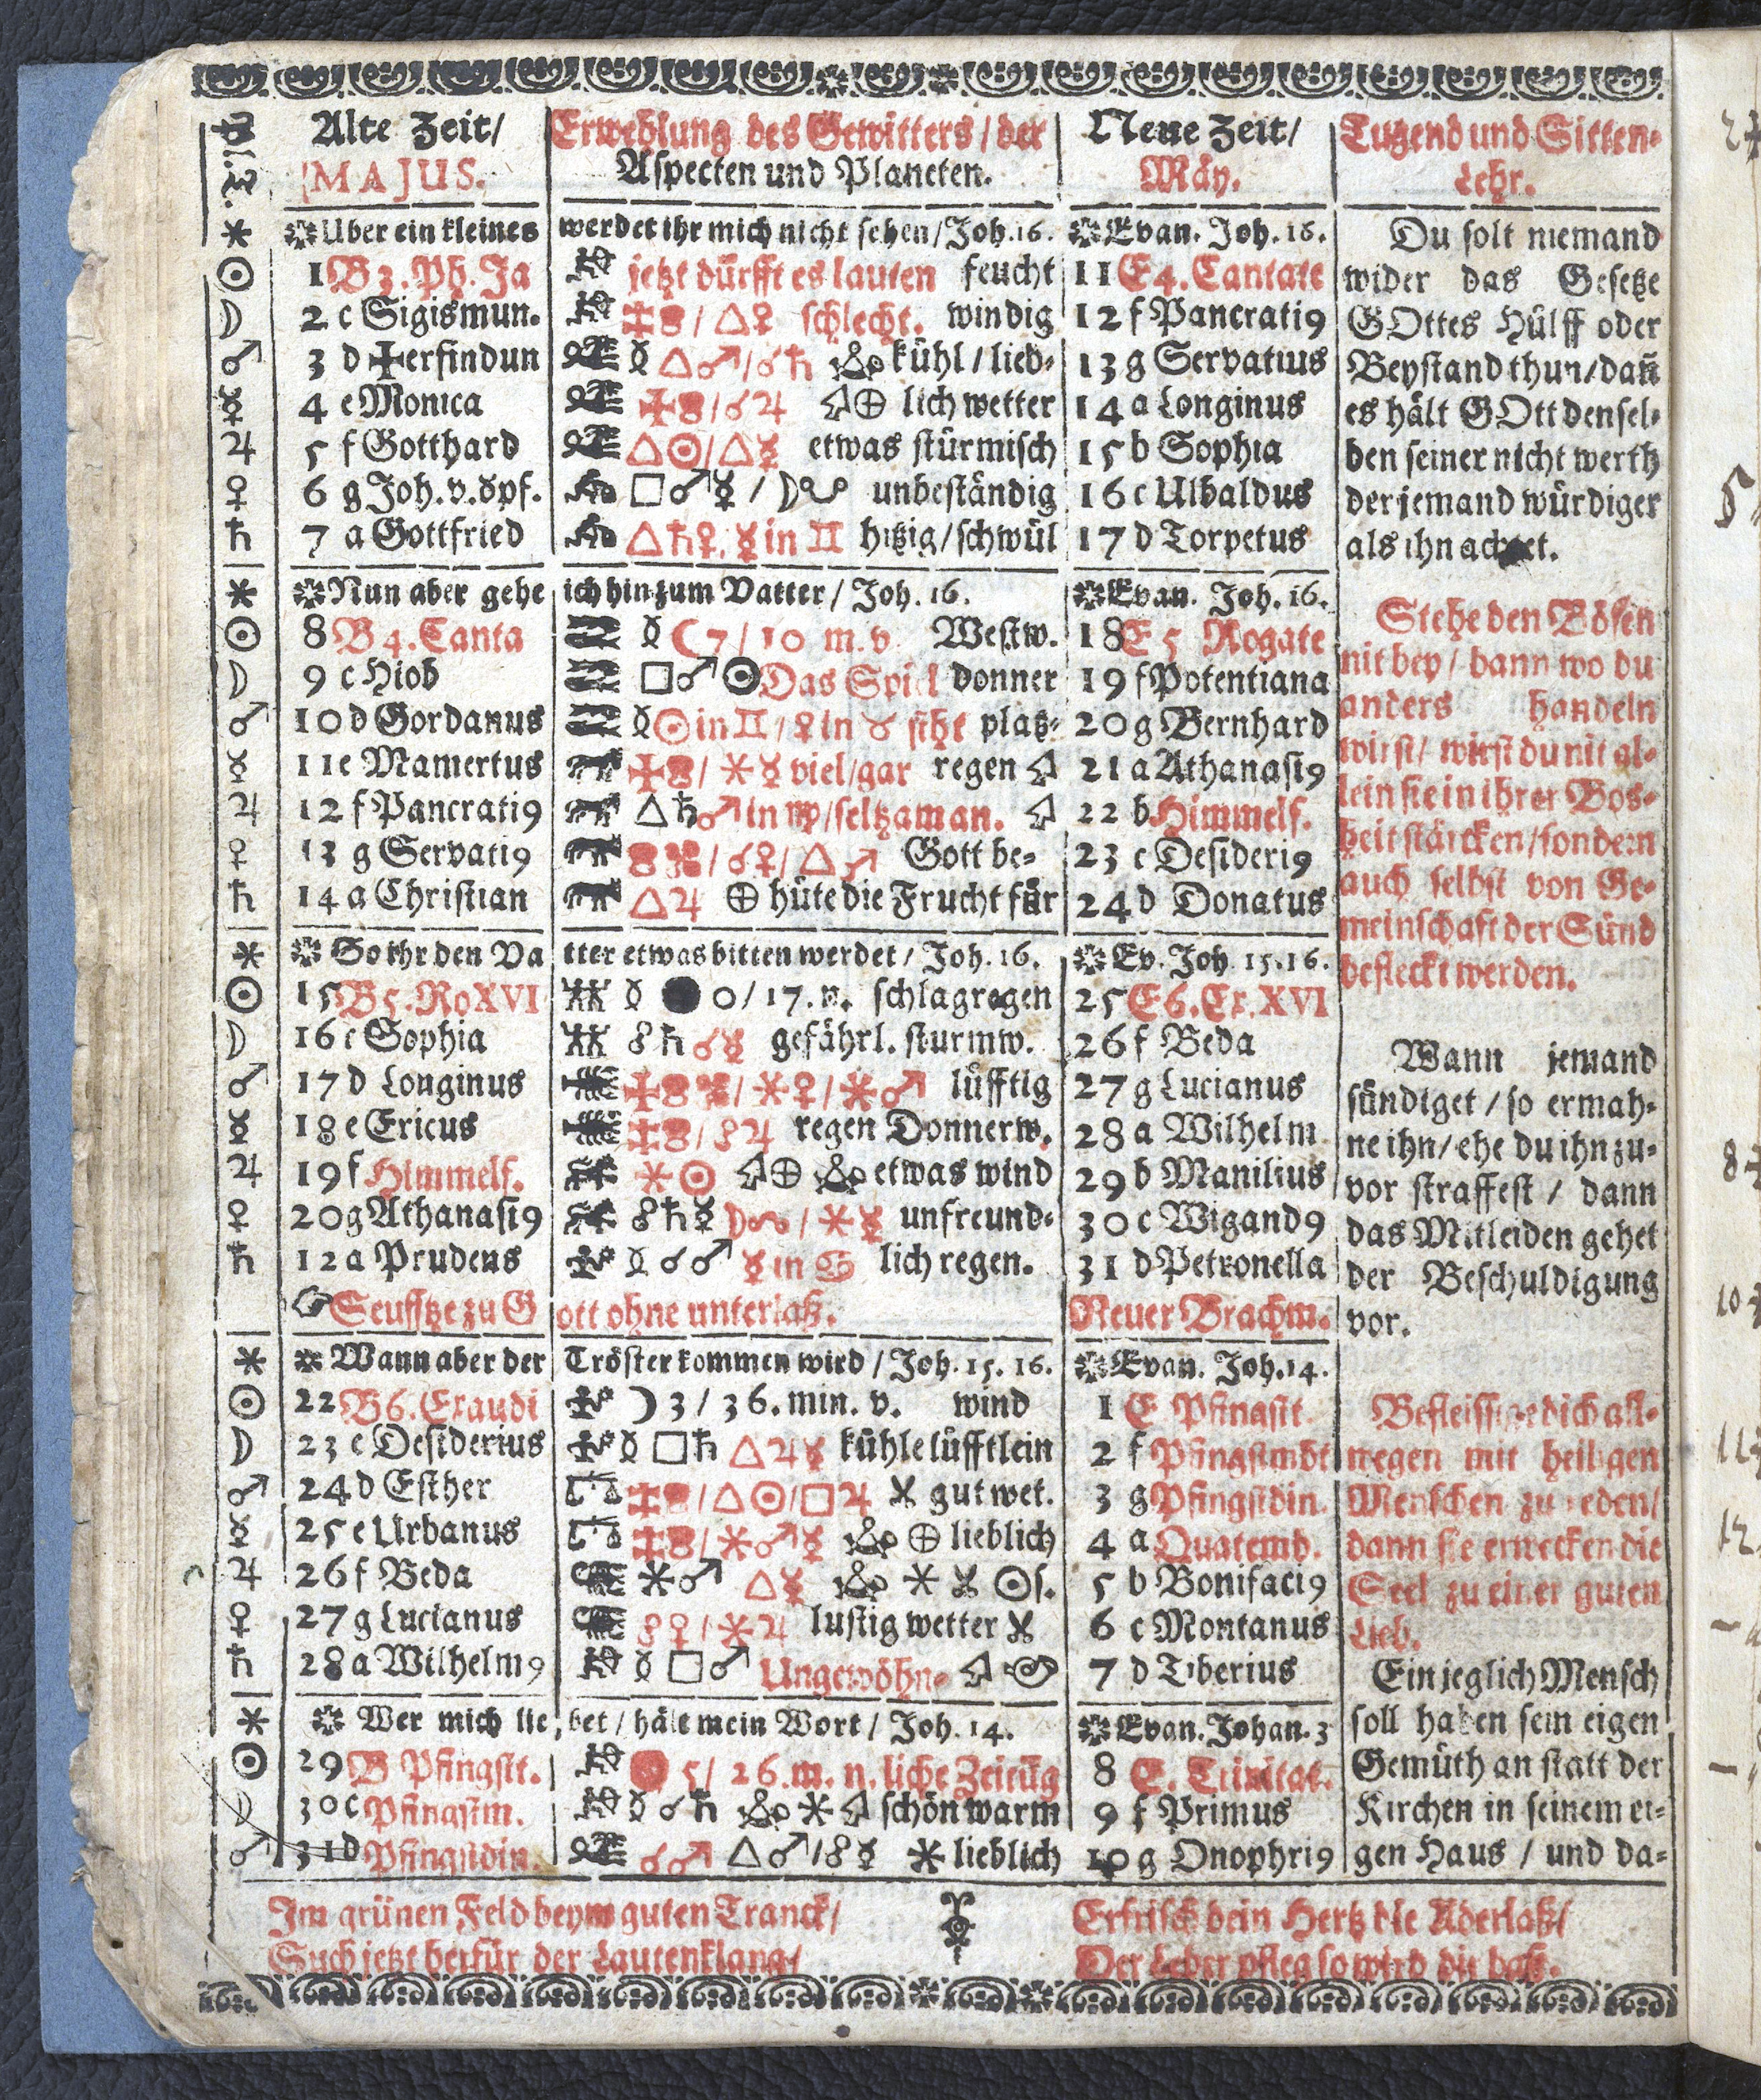 Alte Zeit/ Erwehlung des Gewitters/der Neue Zeit/ Tugend und Sitten-
MAJUS. Aspecten und Planeten. Mäy. Lehr.
* Uber ein kleines werdet ihr mich nicht sehen/Joh.16. Evan. Joh. 16. Du solt niemand
☉ 1 B3. Ph. Ja jetzt dürfft es lauten feucht 11 E4. Cantate wider das Gesetze
☽ 2 c Sigismun. /△♀ schlecht. windig 12 f Pancrati9 GOttes Hülff oder
♂ 3 d ✠erfindun ☿ △♂/☌♄ kühl/lieb- 13 g Servatius Beystand thun/dañ
☿ 4 e Monica /☌♃ ⊕ lich wetter 14 a Longinus es hält GOtt densel-
♃ 5 f Gotthard △☉/△☿ etwas stürmisch 15 b Sophia ben seiner nicht werth
♀ 6 g Joh. v. öpf. □♂☿/☽☋ unbeständig 16 c Ulbaldus der jemand würdiger
♄ 7 a Gottfried △♄♀, ☿ in ♊ hitzig/schwül 17 d Torpetus als ihn achtet.
* Nun aber gehe ich hin zum Vatter/Joh. 16. Evan. Joh. 16.
☉ 8 B4. Canta ☿ ☾7/10 m. v. Westw. 18 E5 Rogate Stehe den Bösen
☽ 9 c Hiob □♂☉ Das Spiel donner 19 f Potentiana nit bey/dann wo du
♂ 10 d Gordanus ☿ ☉ in ♊/♀ in ♉ siht platz- 20 g Bernhard anders handeln
☿ 11 e Mamertus /*☿ viel/gar regen 21 a Athanasi9 wirst/wirst du nit al-
♃ 12 f Pancrati9 △♄♂ in ♍/seltzam an. 22 b Himmelf. lein sie in ihrer Bos-
♀ 13 g Servati9 /☌♀/△♂ Gott be- 23 c Desideri9 heit stärcken/sondern
♄ 14 a Christian △♃ ⊕ hüte die Frucht für 24 d Donatus auch selbst von Ge-
meinschaft der Sünd
* So ihr den Va tter etwas bitten werdet/Joh. 16. Ev. Joh. 15.16. befleckt werden.
☉ 15 B5. Ro XVI ☿ ● 0/17. n. schlagregen 25 E6. Ex. XVI
☽ 16 c Sophia ☍♄☌☿ gefährl. sturmw. 26 f Beda Wann jemand
♂ 17 d Longinus /*♀/*♂ lüfftig 27 g Lucianus sündiget/so ermah-
☿ 18 e Ericus /☍♃ regen Donnerw. 28 a Wilhelm ne ihn/ehe du ihn zu-
♃ 19 f Himmelf. *☉ ⊕ etwas wind 29 b Manilius vor straffest/dann
♀ 20 g Athanasi9 ☍♄☿☽☊/*☿ unfreund- 30 c Wigand9 das Mitleiden gehet
♄ 12 a Prudens ☿ ☌♂ ☿ in ♋ lich regen. 31 d Petronella der Beschuldigung
☞ Seufftze zu G ott ohne unterlaß. Neuer Brachm. vor.
* Wann aber der Tröster kommen wird/Joh. 15. 16. Evan. Joh. 14.
☉ 22 B6. Exaudi ☽ 3/36. min. v. wind 1 E Pfingstt. Befleissige dich all-
☽ 23 c Desiderius ☿ □♄ △♃☿ kühle lüfftlein 2 f Pfingstmõt wegen mit heiligen
♂ 24 d Esther /△☉/□♃ gut wet. 3 g Pfingstdin. Menschen zu reden/
☿ 25 e Urbanus /*♂☿ ⊕ lieblich 4 a Quatemb. dann sie erwecken die
♃ 26 f Beda *♂ △☿ * ☉s. 5 b Bonifaci9 Seel zu einer guten
♀ 27 g Lucianus ☍♀/*♃ lustig wetter 6 c Montanus Lieb.
♄ 28 a Wilhelm9 ☿ □♂ Ungewöhn- 7 d Tiberius Ein jeglich Mensch
* Wer mich lie bet/hält mein Wort/Joh. 14. Evan. Johan. 3 soll haben sein eigen
☉ 29 B Pfingstt. 5/26. m. n. liche Zeitũg 8 E. Trinitat. Gemüth an statt der
☽ 30 c Pfingstm. ☿ ☌♄ * schön warm 9 f Primus Kirchen in seinem ei-
♂ 31 d Pfingstdin. ☌♂ △♂/☍☿ * lieblich 10 g Onophri9 gen Haus/und da-
Im grünen Feld beym guten Tranck/ Erfrisch dein Hertz die Aderlaß/
Such jetzt herfür der Lautenklang/ Der Leber pfleg so wird dir baß.